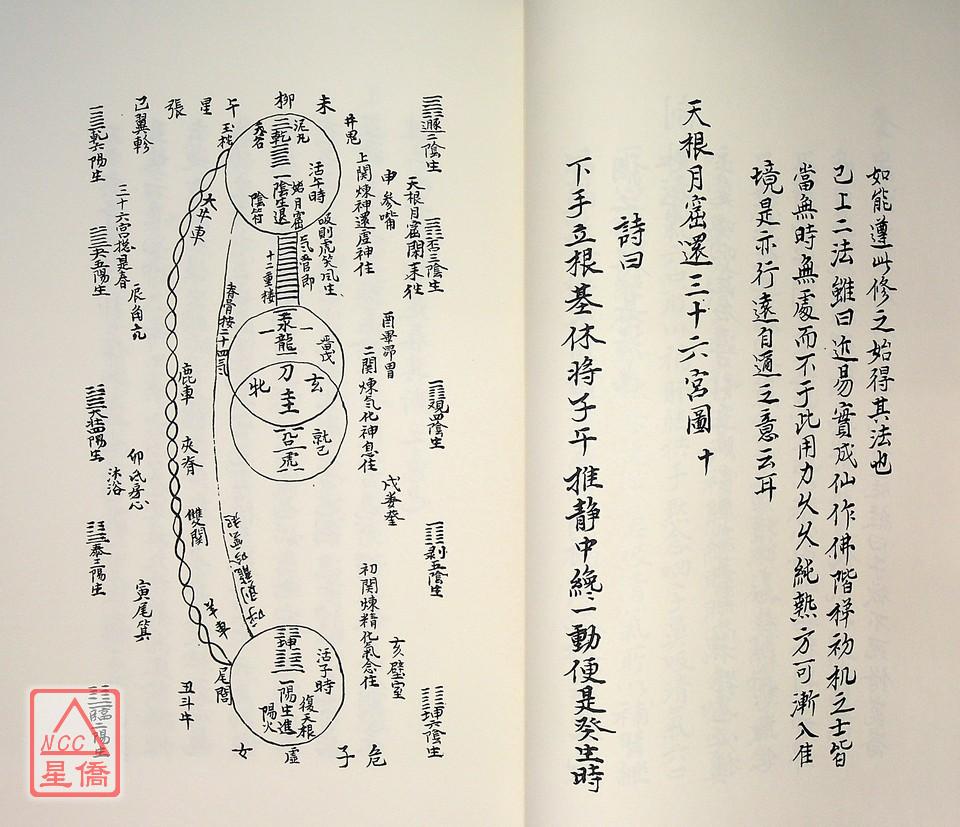 如能遵此修之始得其法也
己上二法雖曰近易實成仙作佛階梯初机之士皆
當無時無處而不于此用力久久純熟方可漸入佳
境是亦行遠自邇之意云耳
天根月窟還三十六宮圖 十
詩曰
下手立根基休將子午推静中纔一動便是癸生時
遯二陰生
否三陰生
觀四陰生
剥五陰生
坤六陰生
未
柳
午
星
張
井鬼
申參嘴
天根月窟閑來往
上関煉神還虛神住
酉畢昴胃
二関煉気化神息住
戌婁奎
初関煉精化氣念住
亥壁室
泥丸
乾
活午時
始月窟
一陰生退
陰符
吸則虎笑風生
十二重楼
玉枕
大牛車
脊骨按二十四氣
汞龍
玄
刀圭
牝
虎
鹿車
夾脊
雙関
羊車
尾閭
坤
活子時
復天根
一陽生進
陽火
危
子
虛
女
巳翼軫
三十六宮摠是春
辰角亢
卯氐房心
沐浴
寅尾箕
丑斗牛
乾六陽生
夬五陽生
大壯四陽生
泰三陽生
臨二陽生
NCC
星僑